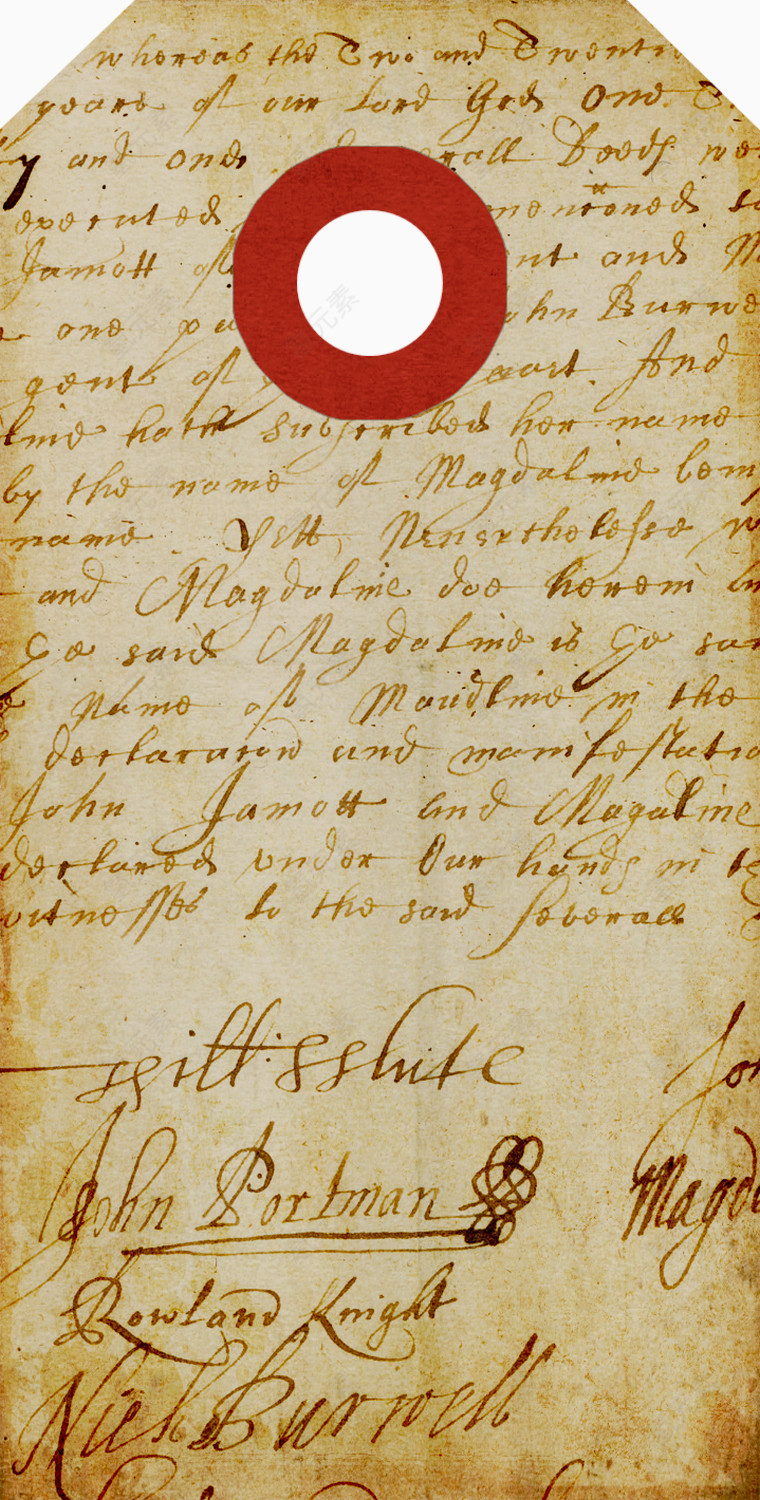 whereas the Two and Twentie
years of our Lord God One
ty and one severall Deeds we
executed mencioned
Jamott of nt and M
one pa John Burwe
gent of part And
line hath subscribed her name
by the name of Magdaline bein
name Yett Neverthelesse w
and Magdaline doe herein
ye said Magdaline is ye sa
Name of Maudline in the
declaracion and manifestatio
John Jamott and Magdaline
declared under Our hands in
witnesses to the said severall
Will: Shute Jo
John Portman Magda
Rowland Knight
Nich Burwell
元素